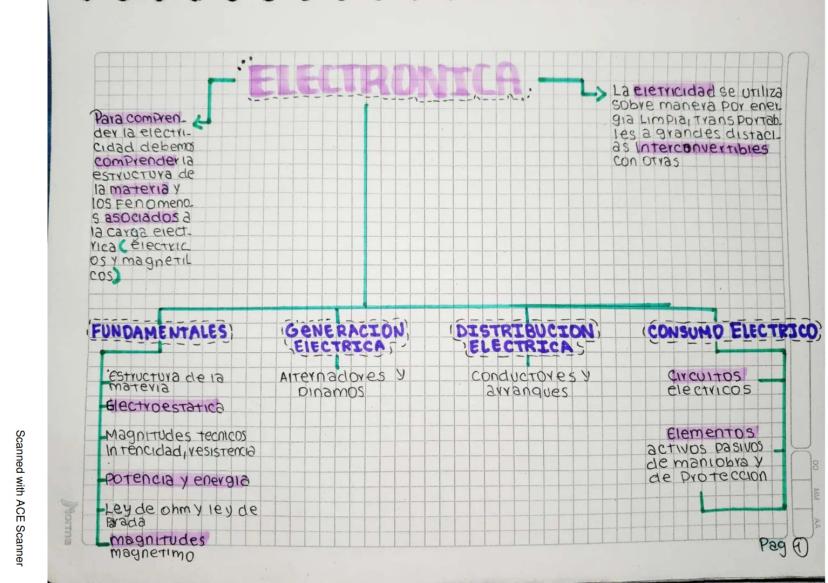 ELECTRONICA
Para compren-
der la electri-
cidad debemos
comprender la
estructura de
la materia y
los Fenomeno
s asociados a
la carga elect-
rica (electric
os y magnetil
cos)
La eletricidad se utiliza
sobre manera por ener
gia Limpia, Trans Portab
les a grandes distaci-
as interconvertibles
con otras
FUNDAMENTALES
Estructura de la
materia
Electroestatica
Magnitudes tecnicos
intencidad, resistencia
Potencia y energia
Ley de ohm y ley de
magnitudes
magnetimo
GENERACION
ELECTRICA
Alternadores y
Dinamos
DISTRIBUCION
ELECTRICA
Conductores y
arranques
CONSUMO ELECTRICO
Circuitos
electricos
Elementos
activos pasivos
de maniobra y
de Proteccion
Pag 1
Norma
DD
MM
AA
Scanned with ACE Scanner